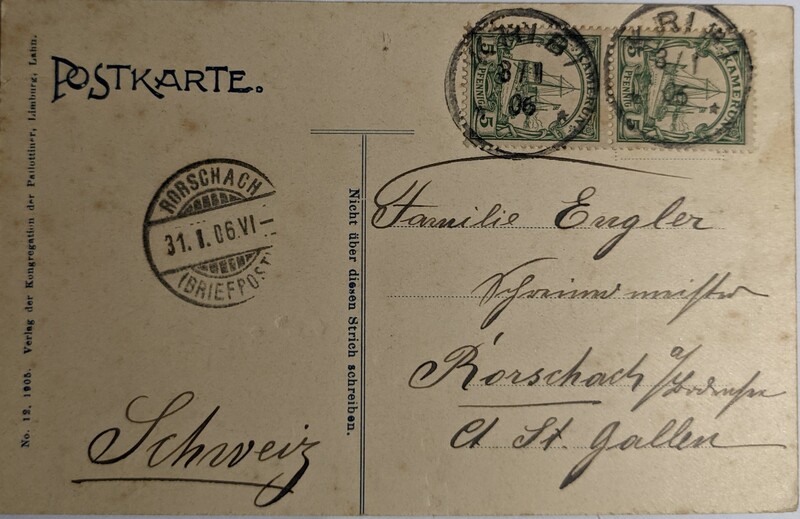 POSTKARTE.
No. 12. 1905. Verlag der Kongregation der Pallottiner, Limburg, Lahn.
Nicht über diesen Strich schreiben.
KAMERUN
5 PFENNIG 5
KAMERUN
5 PFENNIG 5
8/1
06
8/1
06
RORSCHACH
31. I. 06. VI—
(BRIEFPOST)
Familie Engler
Schreinermeister
Rorschach a/Bodensee
Ct St. Gallen
Schweiz